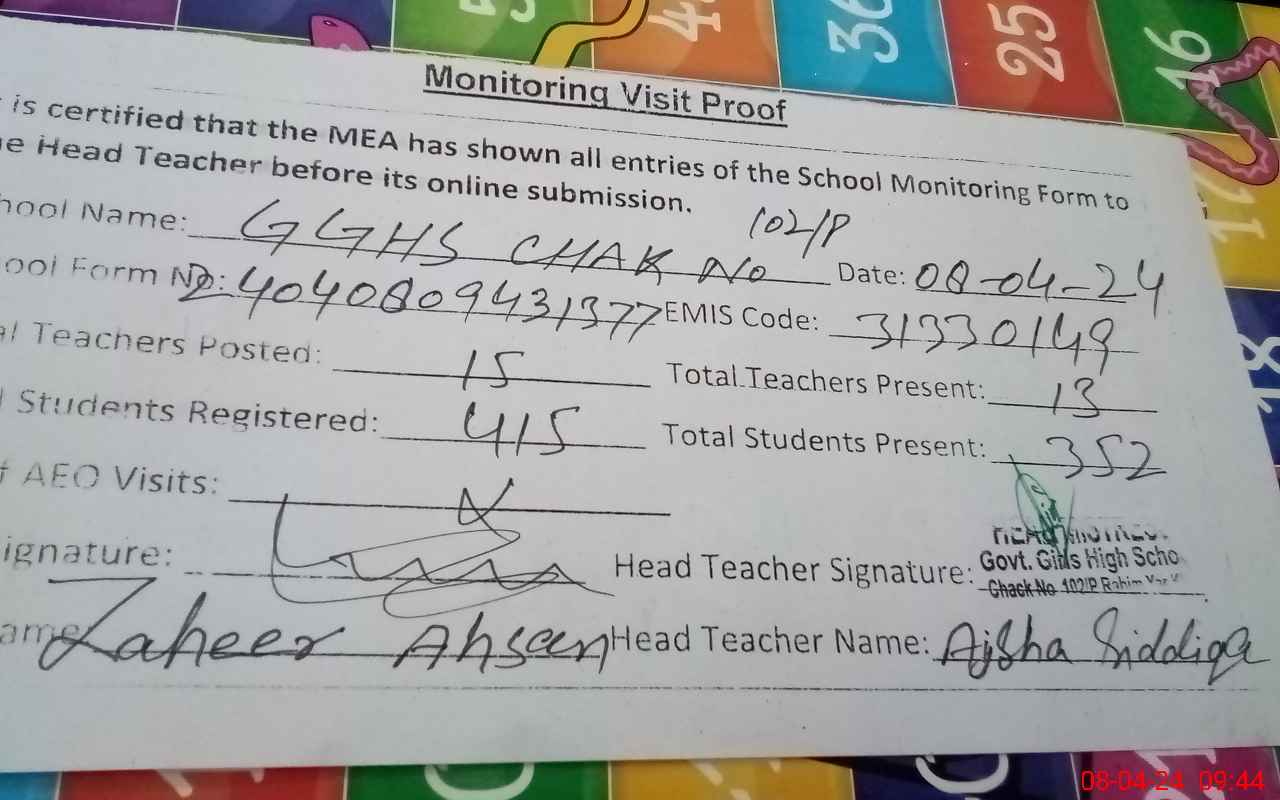 45 36 25 16
17
Monitoring Visit Proof
is certified that the MEA has shown all entries of the School Monitoring Form to
e Head Teacher before its online submission.
hool Name: GGHS CHAK No 102/P Date: 08-04-24
ool Form No: 24040809431377 EMIS Code: 31330149
al Teachers Posted: 15 Total Teachers Present: 13
Students Registered: 415 Total Students Present: 352
f AEO Visits:
ignature: Head Teacher Signature:
Govt. Girls High Scho
Chack No. 102/P Rahim Yar
ame Zaheer Ahseen Head Teacher Name: Ajsha Siddiqa
18
08-04-24 09:44